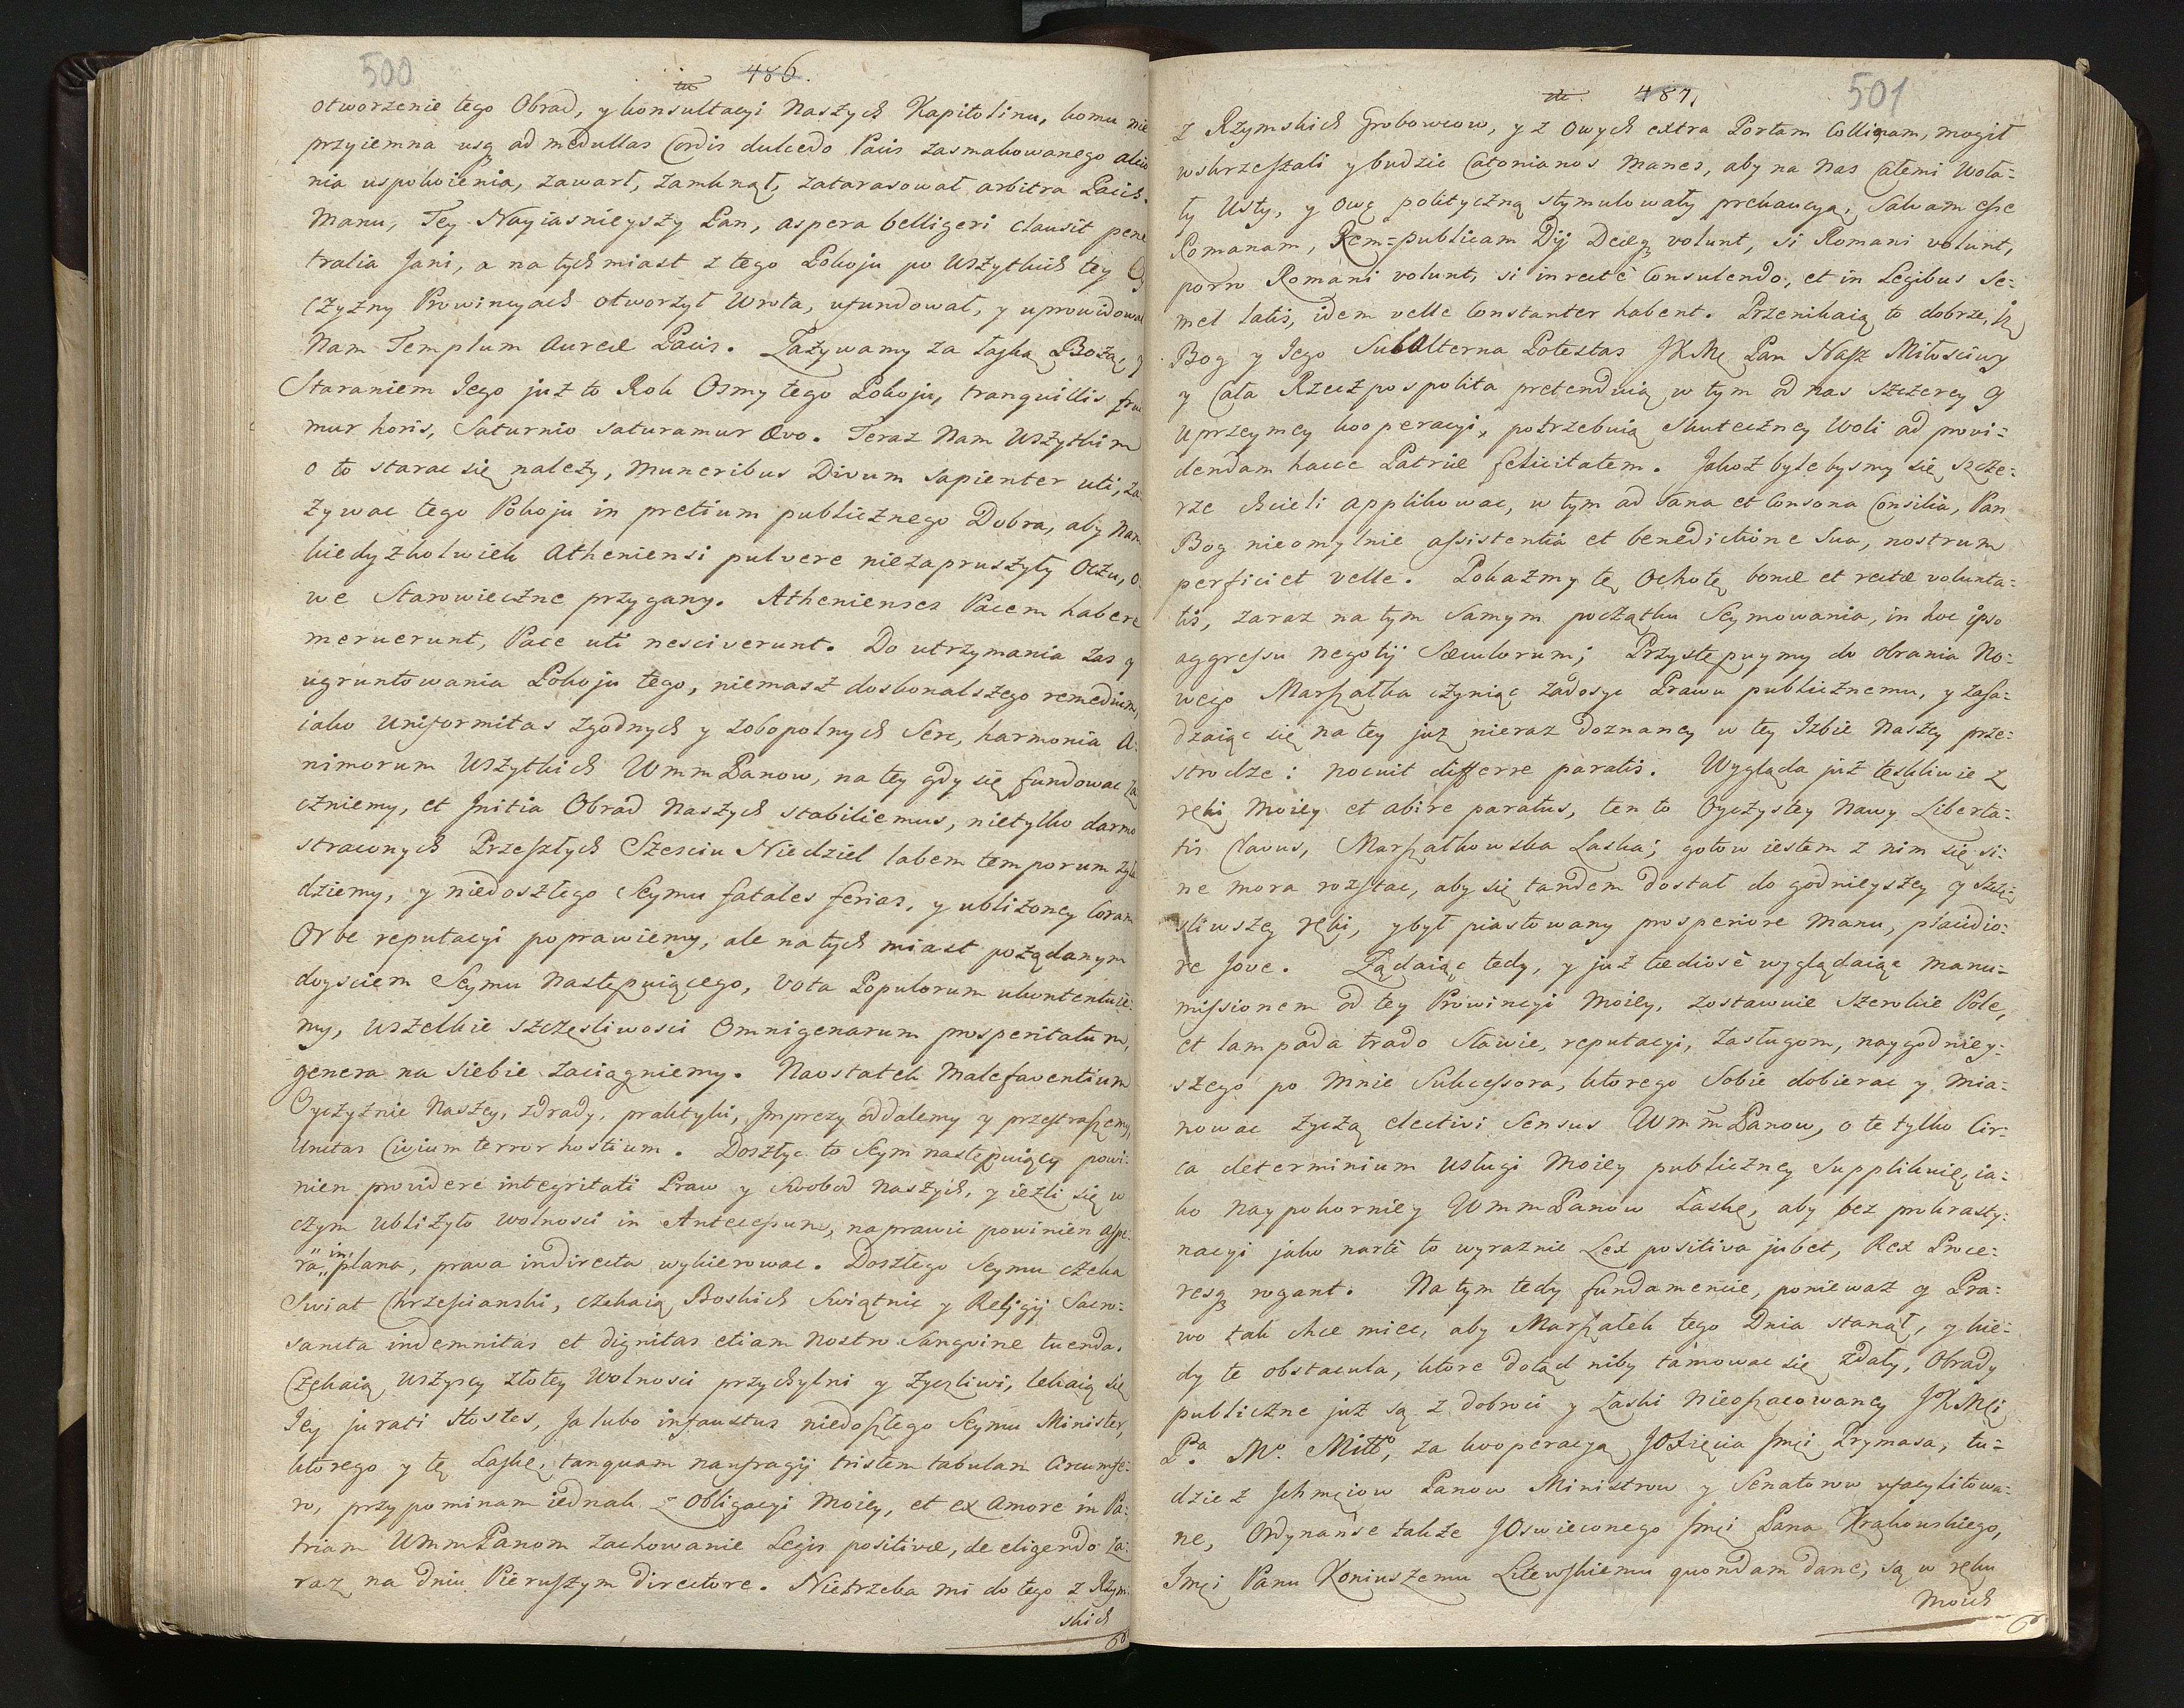 500
486.
otworzenie tego Obrad, y konsultacyi Naszych Kapitolinu, komu nie
przyiemna usq ad medullas Cordis dulcedo Pacis zasmakowanego
nia uspokoienia, zawarł, zamknął, zatarasował arbitra Pacis
Manu, Tey Nayiasnieyszy Pan, aspera belligeri clausit pene
tralia Jani, a natychmiast z tego Pokoju po Wszytkich tey
czyzny Prowincyach otworzył Wrota, ufundował, y uprowidował
Nam Templum aureæ Pacis. Zażywamy za łaską Bożą, y
Staraniem Jego już to Rok Osmy tego Pokoju, tranquillis frui
mur horis, Saturnio saturamur ævo. Teraz Nam Wszytkim
o to starac się należy, Muneribus Divum sapienter uti, za
żywac tego Pokoju in pretium publicznego Dobra, aby Nam
kiedyzkolwiek Atheniensi pulvere niezapruszyły Oczu, o
we Starowieczne przygany. Athenienses Pacem habere
meruerunt, Pace uti nesciverunt. Do utrzymania zas y
ugruntowania Pokoju tego, niemasz doskonalszego remedium,
iako Uniformitas zgodnych y zobopolnych Serc, harmonia A-
nimorum Wszytkich WmmPanow, na tey gdy się fundowac za
czniemy, et Initia Obrad Naszych stabiliemus, nietylko darmo
strawnych Przeszłych Szesciu Niedziel labem temporum zgła
dziemy, y niedoszłego Seymu fatales ferias, y ubliżoney Coram
Orbe reputacyi poprawiemy, ale natych miast pożądanym
doysciem Seymu Następuiącego, Vota Populorum ukontentuie-
my, wszelkie szczęsliwosci Omnigenarum prosperitatum,
genera na siebie zaciągniemy. Naostatek Malefaventium
Oyczyznie Naszey, zdrady, praktyki, Imprezy oddalemy y przestraszemy,
Unitas Civium terror hostium. Doszłyc to Seym następuiący powi-
nien providere integritati Praw y Swobod Naszych, y iezli się w
czym Ubliżyło wolnosci in Antecessum, naprawic powinien aspe-
ra in plana, prava indirecta wykierowac. Doszłego Seymu czeka
Swiat Chrzescianski, czekaią Boskich Swiątnic y Religij Sacro-
sancta indemnitas et dignitas etiam nostro Sangvine tuenda.
Czekaią wszyscy złotey Wolnosci przychylni y życzliwi, lekaią się
Jey jurati Hostes, Ja lubo infaustus niedoszłego Seymu Minister,
ktorego y tę Laskę, tanquam naufragij tristem tabulam Circumfe-
ro, przypominam iednak z Obligacyi Moiey, et ex amore in Pa-
triam WmmPanom zachowanie Legis positivæ, de eligendo za-
raz na dniu Pierwszym directore. Nietrzeba mi do tego z Rzym-
skich
501
487.
z Rzymskich Grobowcow, y z owych extra Portam Collinam, mogił
wskrzeszali y budzic Catonianos Manes, aby na Nas Całemi Woła-
ły Usty, y ową polityczną stymulowały prekaucyą, Salvam esse
Romanam, Rem=publicam Dij Deæq volunt, si Romani volunt,
porro Romani volunt, si in recte Consulendo, et in Legibus Se-
mel latis, idem velle Constanter habent. Przenikaią to dobrze,
Bog y Jego SubAlterna Potestas JKMę Pan Nasz Miłosciwy
y Cała Rzeczpospolita pretenduią w tym od nas szczerey y
Uprzeymey kooperacyi, potrzebuią skuteczney Woli ad provi-
dendam hacce Patriæ felicitatem. Jakoż bylebysmy się szcze-
rze chcieli applikowac, w tym ad Sana et Consona Consilia, Pan
Bog nieomylnie assistentia et benedictione Sua, nostrum
perficiet velle. Pokazmy tę Ochotę bonæ et rectæ volunta-
tis, zaraz na tym samym początku Seymowania, in hoc ipso
aggressu negotij Sæculorum; Przystępuymy do obrania No-
wego Marszałka czyniąc zadosyc Prawu publicznemu, y zasa-
dzaiąc się na tey już nieraz doznaney w tey Izbie Naszey prze-
strodze: nocuit differre paratis. Wygląda już teskliwie z
ręki Moiey et abire paratus, ten to Oyczystey Nawy Liberta-
tis Clavus, Marszałkowska Laska; gotow iestem z nim się si-
ne mora rozstac, aby się tandem dostał do godnieyszey y szczę-
sliwszey ręki, y był piastowany prosperiore Manu, placidio-
re Jove. Żądaiąc tedy, y już tædiosè wyglądaiąc manu-
missionem od tey Prowincyi Moiey, zostawuię szerokie Pole,
et lampada trado Sławie, reputacyi, Zasługom, naygodniey-
szego po Mnie Sukcessora, ktorego Sobie dobierac y mia-
nowac życzą electivi Sensus WmmPanow, o te tylko Cir-
ca determinium Usługi Moiey publiczney Supplikuię, ia-
ko naypokorniey WmmPanow Laskę, aby bez prokrasty-
nacyi jako to wyraznie Lex positiva jubet, Rex Proce-
resq rogant. Natym tedy fundamencie, ponieważ y Pra-
wo tak chce miec, aby Marszałek tego Dnia stanął, y kie-
dy te obstacula, ktore dotąd niby tamowac się zdały, Obrady
publiczne już są z dobroci y Łaski nieoszacowaney JKMci
Pa. Mo. Mitto, za kooperacyą JOXięcia Jmci Prymasa, tu-
dzież Jchmciow Panow Ministrow y Senatorow ufacylitowa-
ne, Ordynanse także JOswieconego Jmci Pana Krakowskiego,
Jmci Panu Koniuszemu Litewskiemu quondam dane, są w ręku
Moich